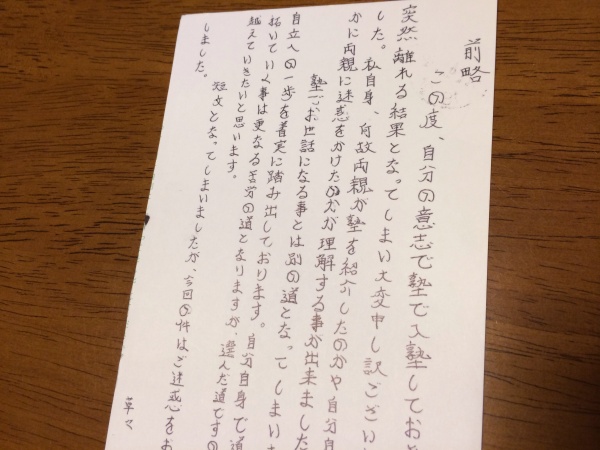 前略
この度、自分の意志で塾で入塾してお
突然離れる結果となってしまい大変申し訳ござい
した。私自身、何故両親が塾を紹介したのかや自分自
かに両親に迷惑をかけたのかが理解する事が出来ました
塾でお世話になる事とは別の道となってしまい
自立への一歩を着実に踏み出しております。自分自身で道
拓いていく事は更なる苦労の道となりますが、選んだ道ですの
越えていきたいと思います。
短文となってしまいましたが、今回の件はご迷惑をお
しました。
草々